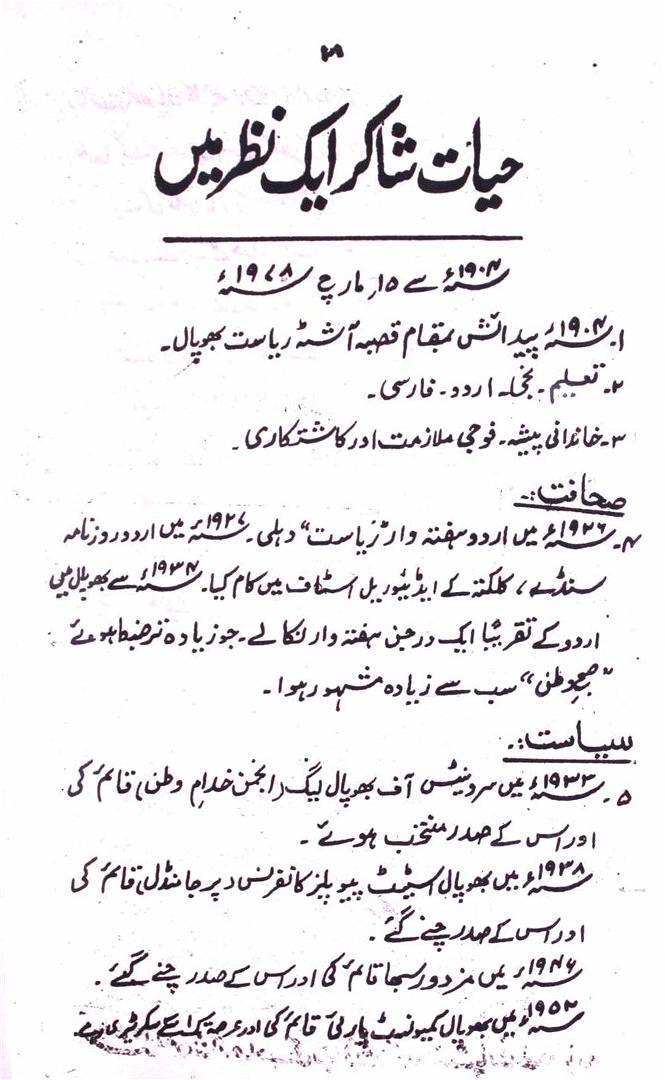 ۳۱
حیات شاکر ایک نظر میں
۱۹۰۴ء سے ۱۵ر مارچ ۱۹۷۸ء
۱۔ ۱۹۰۴ء پیدائش بمقام قصبہ آشٹہ ریاست بھوپال۔
۲۔ تعلیم۔ نجی۔ اردو۔ فارسی۔
۳۔ خاندانی پیشہ۔ فوجی ملازمت اور کاشتکاری۔
صحافت:۔
۴۔ ۱۹۲۶ء میں اردو ہفتہ وار "ریاست" دہلی۔ ۱۹۲۷ء میں اردو روزنامہ
سنڈے، کلکتہ کے ایڈیٹوریل اسٹاف میں کام کیا۔ ۱۹۳۴ء سے بھوپال میں
اردو کے تقریباً ایک درجن ہفتہ وار نکالے۔ جو زیادہ تر ضبط ہوئے
"صبح وطن" سب سے زیادہ مشہور ہوا۔
سیاست:۔
۵۔ ۱۹۳۳ء میں سرونیٹس آف بھوپال لیگ (انجمن خدام وطن) قائم کی
اور اس کے صدر منتخب ہوئے۔
۱۹۳۸ء میں بھوپال اسٹیٹ پیوپلز کانفرنس (پرجا منڈل) قائم کی
اور اس کے صدر چنے گئے۔
۱۹۴۶ء میں مزدور سبھا قائم کی اور اس کے صدر چنے گئے۔
۱۹۵۲ء میں بھوپال کمیونسٹ پارٹی قائم کی اور عرصہ تک اسکے سکریٹری رہے۔